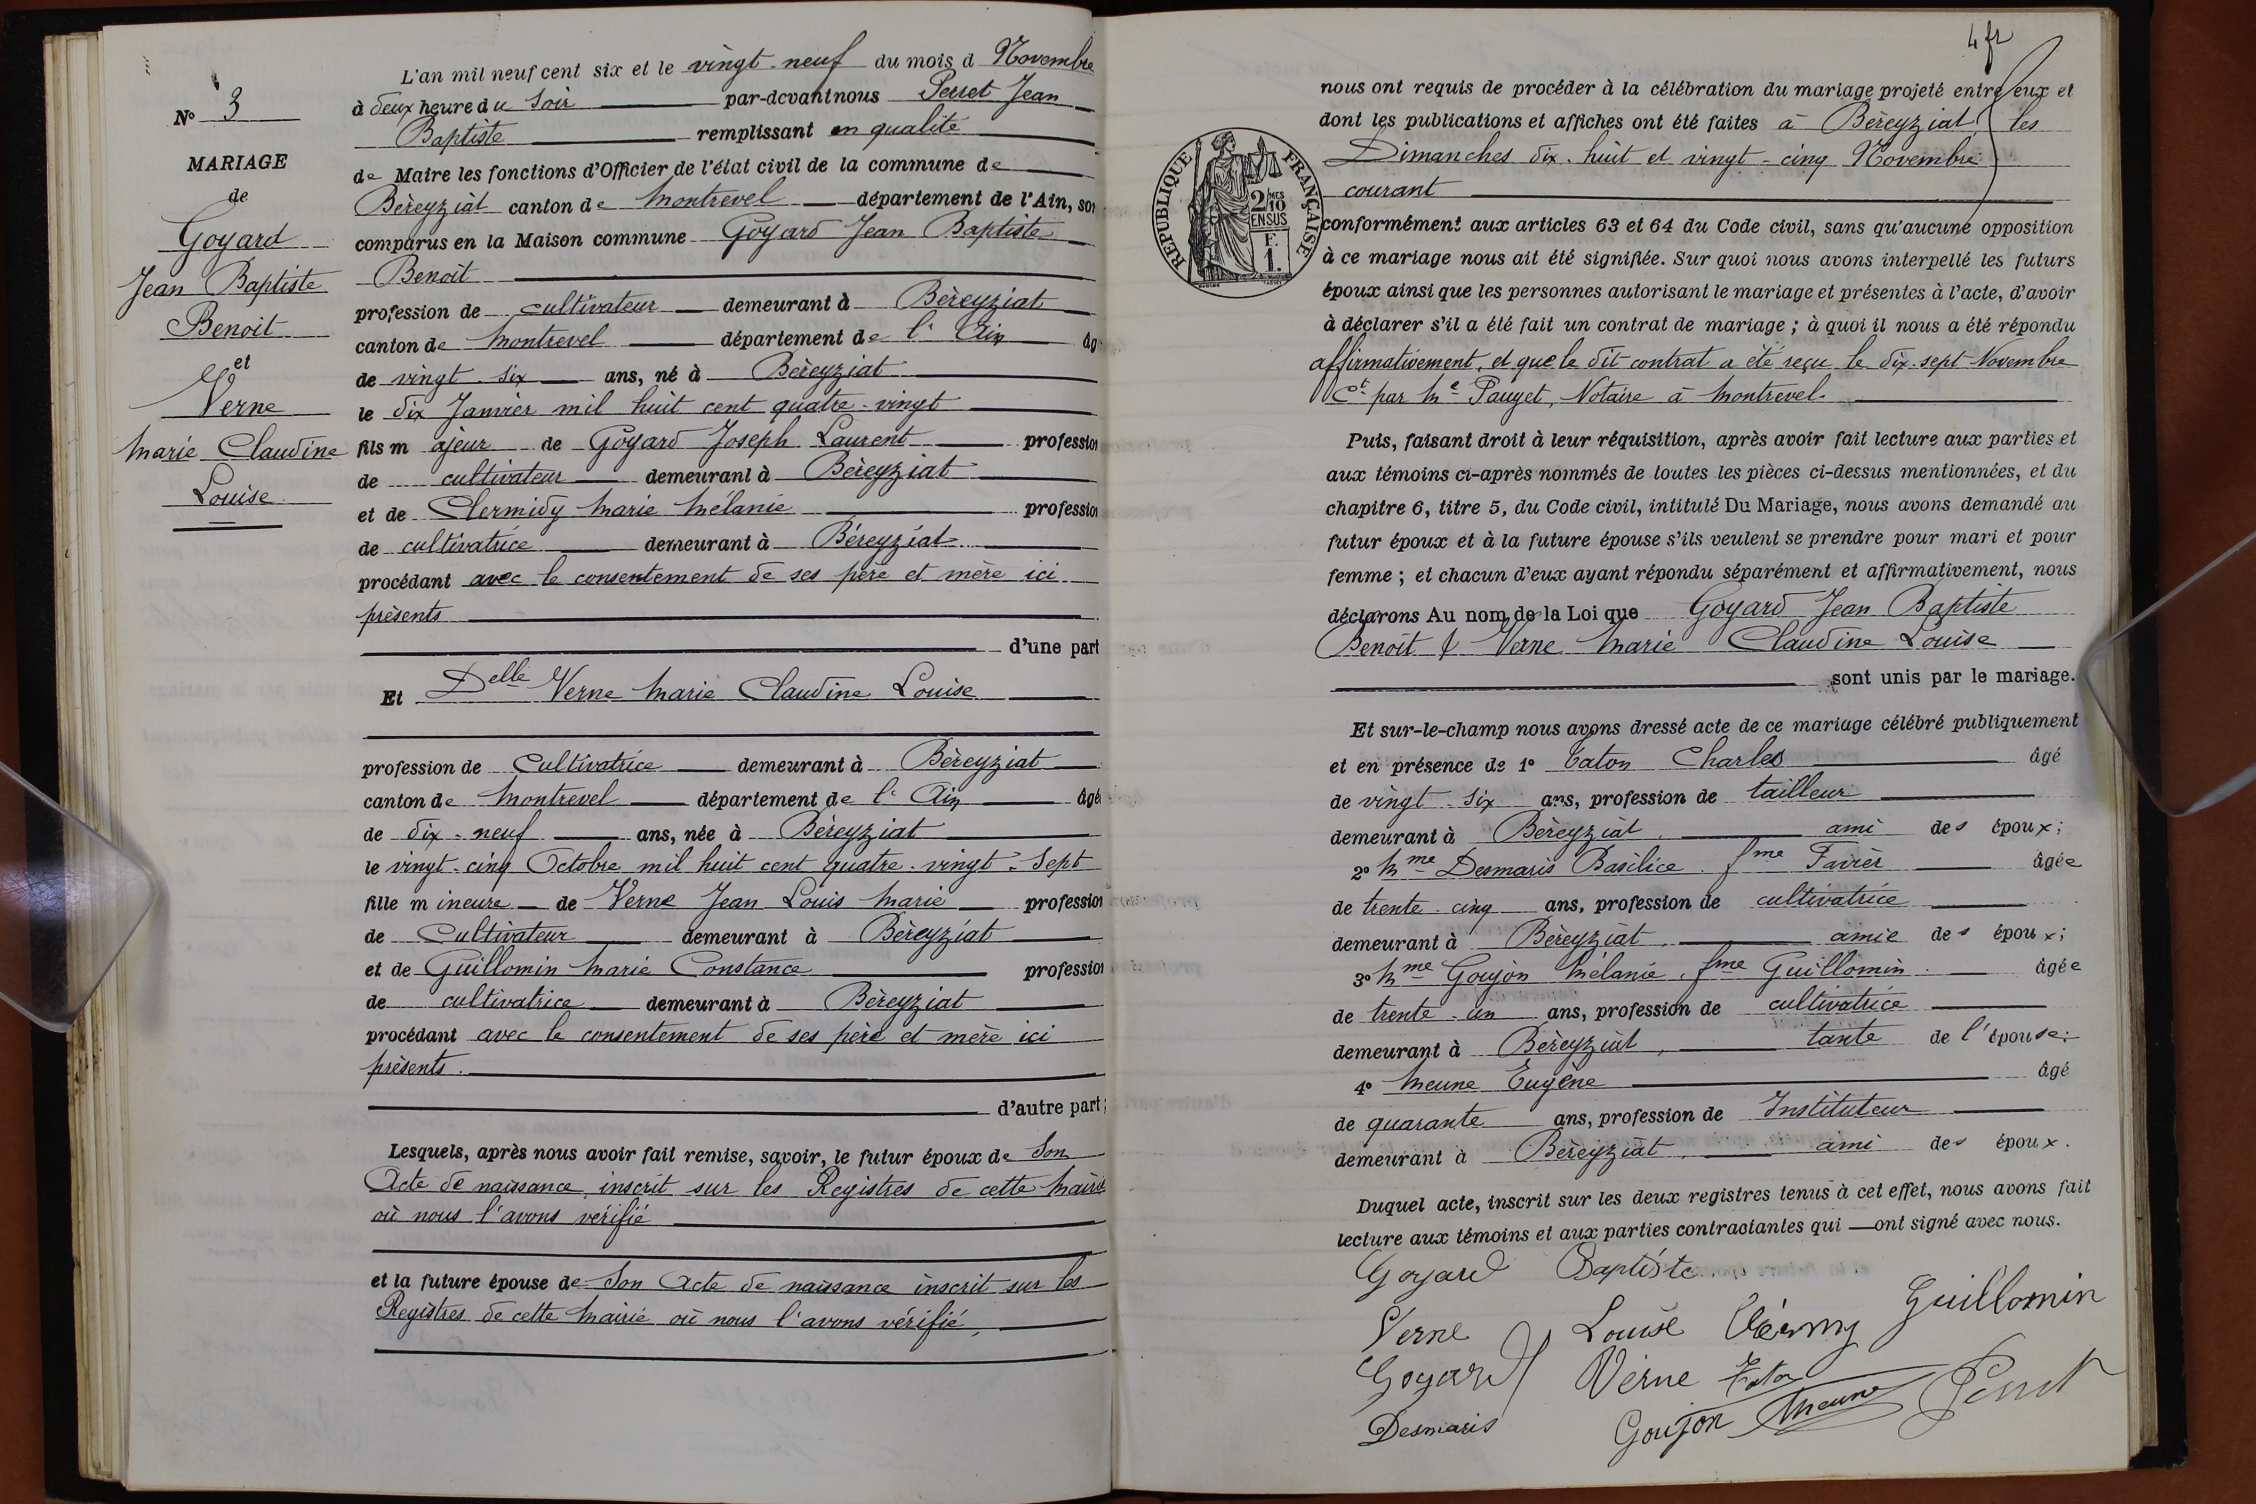 L'an mil neuf cent six et le vingt-neuf du mois d Novembre
N° 3
à deux heure du Soir par-devant nous Perret Jean
Baptiste remplissant en qualité
MARIAGE
de Maire les fonctions d'Officier de l'état civil de la commune de
de
Béreyziat canton de Montrevel département de l'Ain, son
Goyard
comparus en la Maison commune Goyard Jean Baptiste
Jean Baptiste
Benoit
Benoit
profession de cultivateur demeurant à Béreyziat
canton de Montrevel département de l'Ain âg
et
de vingt-six ans, né à Béreyziat
Verne
le dix Janvier mil huit cent quatre-vingt
Marie Claudine
fils majeur de Goyard Joseph Laurent profession
Louise
de cultivateur demeurant à Béreyziat
et de Clermidy Marie Mélanie profession
de cultivatrice demeurant à Béreyziat
procédant avec le consentement de ses père et mère ici
présents
d'une part
Et Delle Verne Marie Claudine Louise
profession de Cultivatrice demeurant à Béreyziat
canton de Montrevel département de l'Ain âgé
de dix-neuf ans, née à Béreyziat
le vingt-cinq Octobre mil huit cent quatre-vingt-sept
fille mineure de Verne Jean Louis Marie profession
de Cultivateur demeurant à Béreyziat
et de Guillomin Marie Constance profession
de cultivatrice demeurant à Béreyziat
procédant avec le consentement de ses père et mère ici
présents.
d'autre part;
Lesquels, après nous avoir fait remise, savoir, le futur époux de Son
Acte de naissance inscrit sur les Registres de cette Mairie
où nous l'avons vérifié
et la future épouse de Son Acte de naissance inscrit sur les
Registres de cette Mairie où nous l'avons vérifié,
4 fr
nous ont requis de procéder à la célébration du mariage projeté entre eux et
dont les publications et affiches ont été faites à Béreyziat, les
Dimanches dix-huit et vingt-cinq Novembre
courant
RÉPUBLIQUE FRANÇAISE
2/10 EN SUS
F. 1.
conformément aux articles 63 et 64 du Code civil, sans qu'aucune opposition
à ce mariage nous ait été signifiée. Sur quoi nous avons interpellé les futurs
époux ainsi que les personnes autorisant le mariage et présentes à l'acte, d'avoir
à déclarer s'il a été fait un contrat de mariage ; à quoi il nous a été répondu
affirmativement, et que le dit contrat a été reçu le dix-sept Novembre
ct par Me Pauget, Notaire à Montrevel.
Puis, faisant droit à leur réquisition, après avoir fait lecture aux parties et
aux témoins ci-après nommés de toutes les pièces ci-dessus mentionnées, et du
chapitre 6, titre 5, du Code civil, intitulé Du Mariage, nous avons demandé au
futur époux et à la future épouse s'ils veulent se prendre pour mari et pour
femme ; et chacun d'eux ayant répondu séparément et affirmativement, nous
déclarons Au nom de la Loi que Goyard Jean Baptiste
Benoît & Verne Marie Claudine Louise
sont unis par le mariage.
Et sur-le-champ nous avons dressé acte de ce mariage célébré publiquement
et en présence de 1° Taton Charles âgé
de vingt-six ans, profession de tailleur
demeurant à Béreyziat, ami des époux;
2° Mme Desmaris Basilice fme Favier âgée
de trente-cinq ans, profession de cultivatrice
demeurant à Béreyziat, amie des époux;
3° Mme Goujon Mélanie, fme Guillomin âgée
de trente-un ans, profession de cultivatrice
demeurant à Béreyziat, tante de l'épouse;
4° Meune Eugène âgé
de quarante ans, profession de Instituteur
demeurant à Béreyziat, ami des époux.
Duquel acte, inscrit sur les deux registres tenus à cet effet, nous avons fait
lecture aux témoins et aux parties contractantes qui ont signé avec nous.
Goyard Baptiste
Verne Louise Guillomin
Goyard Verne Taton
Desmaris Goujon Meune Perret